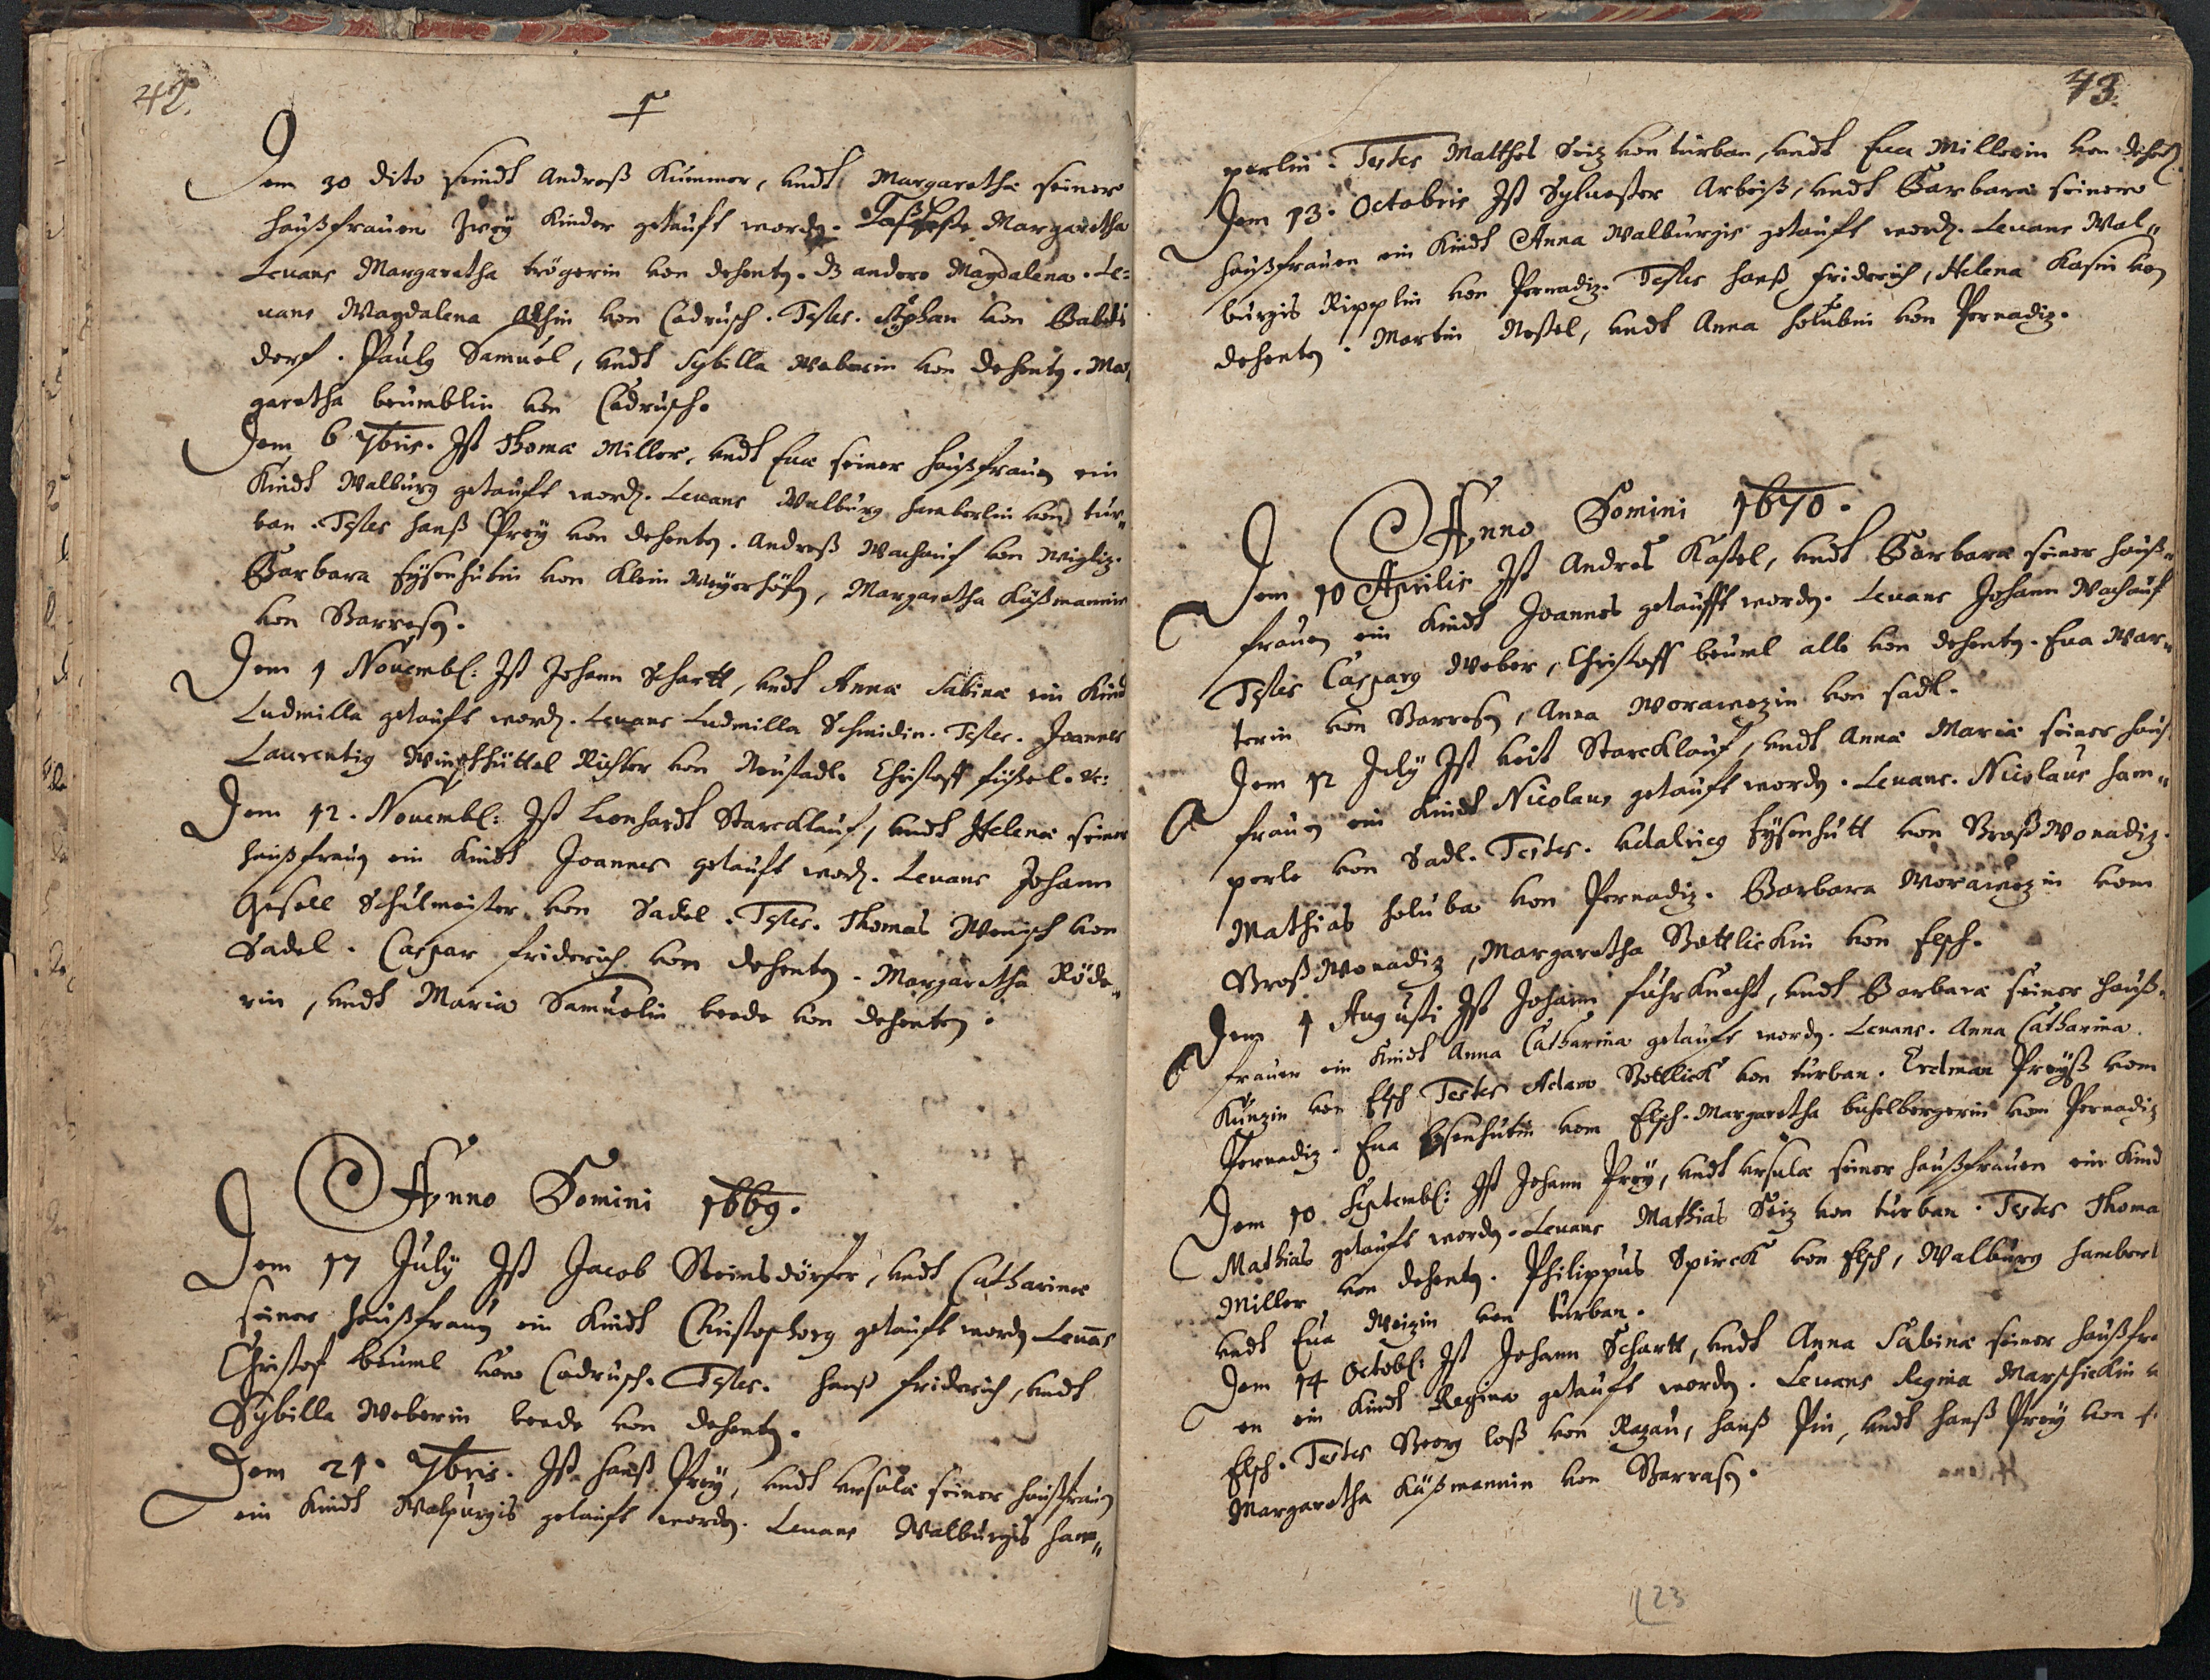 42.
Dem 30 dito seindt Andreß Kummer, undt Margaretha seiner
haußfrauen Zwey Kinder getaufft worden. Daß erste Margaretha
Levans Margaretha trögerin von dehenten. dz andere Magdalena. Le-
vans Magdalena von Codrusch. Testes. Stephan von
dorf. Pauly Samuel, undt Sybilla Weberin von dehenten. Mar,
garetha beümblin von Codrusch.
Dem 6 7bris. Ist Thoma Miller, undt Eva seiner haußfrauen ein
Kindt Walburg getauft word. Levans Walburg hamberlin von tur„
ban. Testes hanß Prey von dehenten. Andreß Wachauf von
Barbara Eysenhutin von Klein Meyerhöfen, Margaretha Käßmannin
von
Dem 1 Novembl: Ist Johann Schartt, undt Anna Sabina ein Kind
Ludmilla getauft word. Levans Ludmilla Schmidin. Testes. Joannes
Laurentig Richter von Neustadl. Christoff füssel. etc:
Dem 12. Novembl: Ist Leonhardt Starcklauf, undt Helena seiner
haußfrauen ein Kindt Joannes getauft word. Levans Johann
Gesell Schulmeister von Sadel. Testes. Thomas Wenisch von
Sadel. Caspar friderich von dehenten. Margaretha Röde„
rin, undt Maria Samuelin beede von dehenten.
Anno Domini 1669.
Dem 17 July Ist Jacob Steinsdörfer, undt Catharina
seiner haußfrauen ein Kindt Christophorg getauft worden Levans
Christof beuml von Codrusch. Testes. hanß friderich, undt
Sybilla Weberin beede von dehenten.
Dem 21. 7bris. Ist hanß Prey, undt Ursula seiner haußfrauen
ein Kindt Walpurgis getauft worden. Levans Walburgis ham„
43.
perlin. Testes Matthes Seiz von turban, undt Eva Millerin von dehent.
Dem 13. Octobris Ist Sylvester Arbeiß, undt Barbara seiner
haußfrauen ein Kindt Anna Walburgis getauft word. Levans Wal„
burgis Ripplin von Pernadiz. Testes hanß friderich, Helena Kasin von
dehenten. Martin Nessel, undt Anna holubin von Pernadiz.
Anno Domini 1670.
Dem 10 Aprilis Ist Andres Kastel, undt Barbara seiner hauß„
frauen ein Kindt Joannes getaufft worden. Levans Johann Wachauf
Testes Casparg Weber, Christoff beuml alle von dehenten. Eva War„
terin von, Anna Worawezin von sadl.
Dem 12 July Ist Veit Starcklauf, undt Anna Maria seiner hauß
frauen ein Kindt Nicolaus getauft worden. Levans. Nicolaus ham„
perle von Sadl. Testes. Udalricg Eysenhutt von Groß Wonadiz.
Mathias holuba von Pernadiz. Barbara Worawezin von
Groß Wonadiz, Margaretha Bottlickin von Elsch.
Dem 1 Augusti Ist Johann fuhrknecht, undt Barbara seiner hauß„
frauen ein Kindt Anna Catharina getauft worden. Levans. Anna Catharina
Kunzin von Elsch Testes Adam Bottlick von turban. Erdman Preyß von
Pernadiz. Eva Eysenhutin von Elsch. Margaretha buchelbergerin von Pernadiz
Dem 10 Septembl: Ist Johann Prey, undt Ursula seiner haußfrauen ein Kind
Mathias getauft worden. Levans Mathias Seiz von turban. Testes Thoma
Miller von dehenten. Philippus Spirck von Elsch, Walburg hamberl
undt Eva von turban.
Dem 14 Octobl: Ist Johann Schartt, undt Anna Sabina seiner haußfra
en ein Kindt Regina getauft worden. Levans Regina Marschickin v
Elsch. Testes Georg loß von Razau, hanß Pin, undt hanß Prey von
Margaretha Käßmannin von
23